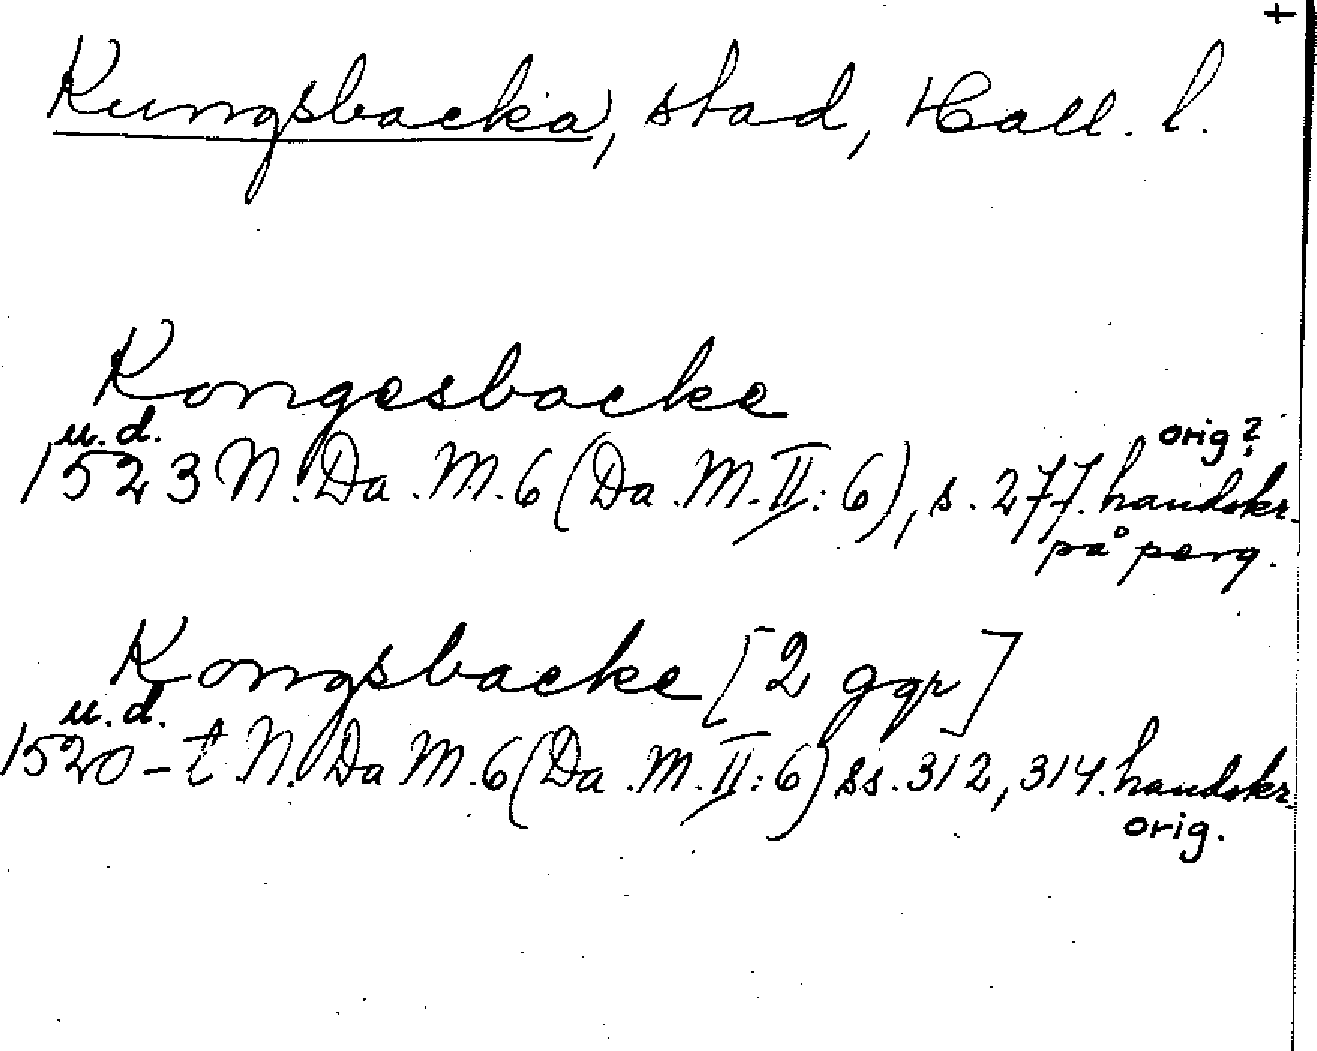 +
Kungsbacka, stad, Hall. l.
Kongesbacke
u. d.
orig?
1523 N. Da. M. 6 (Da. M. II: 6), s. 277. handskr.
på perg.
Kongsbacke [2 ggr]
u. d.
1520-t N. Da M. 6 (Da. M. II: 6) ss. 312, 314. handskr.
orig.